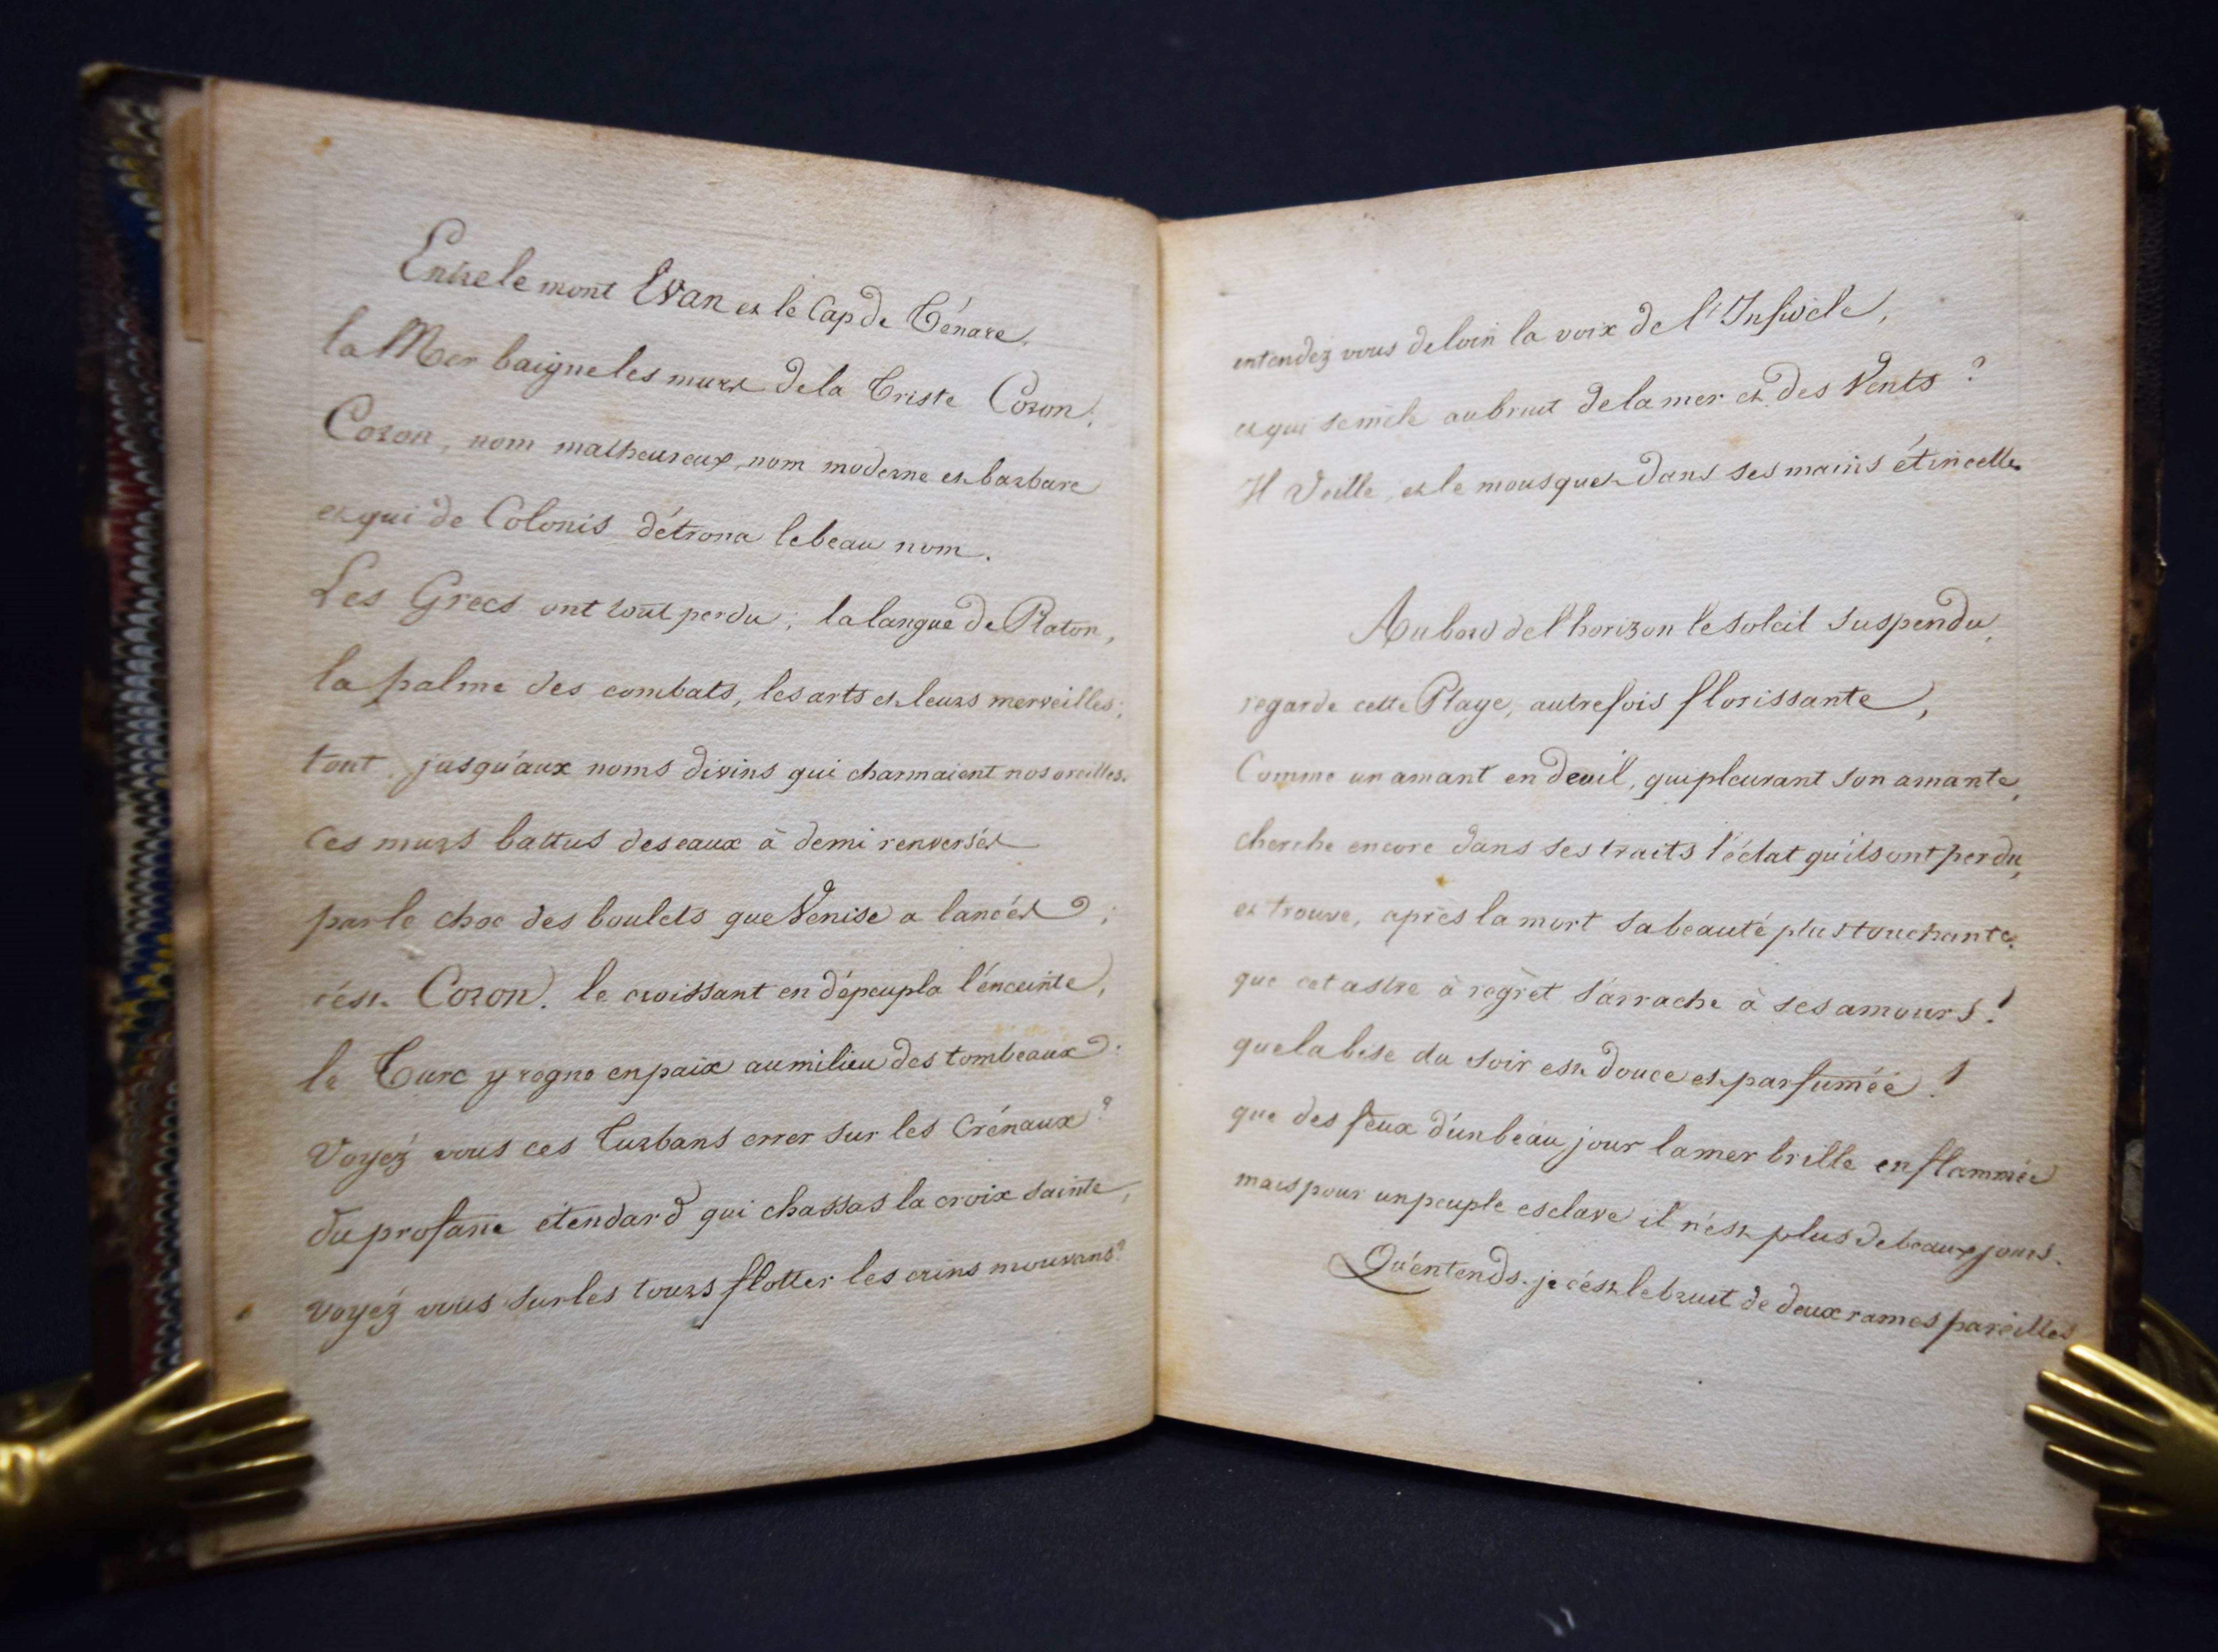 Entre le mont Evan et le Cap de Ténare,
la Mer baigne les murs de la Triste Coron;
Coron, nom malheureux, nom moderne et barbare
et qui de Colonis détrona le beau nom.
Les Grecs ont tout perdu; la langue de Platon,
la palme des combats, les arts et leurs merveilles;
tout, jusqu'aux noms divins qui charmaient nos oreilles.
Ces murs battus des eaux à demi renversés
par le choc des boulets que Venise a lancés;
c'est Coron. le croissant en dépeupla l'enceinte,
le Turc y regne en paix au milieu des tombeaux.
Voyéz vous ces Turbans errer sur les Crénaux?
du profane étendard qui chassas la croix sainte,
voyéz vous sur les tours flotter les crins mouvans?
entendez vous de loin la voix de l'Infidele,
et qui se mêle au bruit de la mer et des Vents?
Il Veille, et le mousquet dans ses mains étincelle.
Au bord de l'horizon le soleil suspendu,
regarde cette Plage, autrefois florissante,
Comme un amant en deuil, qui pleurant son amante,
cherche encore dans ses traits l'éclat qu'ils ont perdu,
et trouve, après la mort sa beauté plus touchante.
que cet astre à regrèt s'arrache à ses amours!
que la bise du soir est douce et parfumée!
que des feux d'un beau jour la mer brille enflammée
mais pour un peuple esclave il n'est plus de beaux jours.
Qu'entends-je c'est le bruit de deux rames pareilles